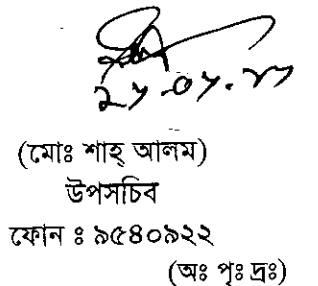 (মোঃ শাহ্ আলম)
উপসচিব
ফোন ঃ ৯৫৪০৯২২
(অঃ পৃঃ দ্রঃ)